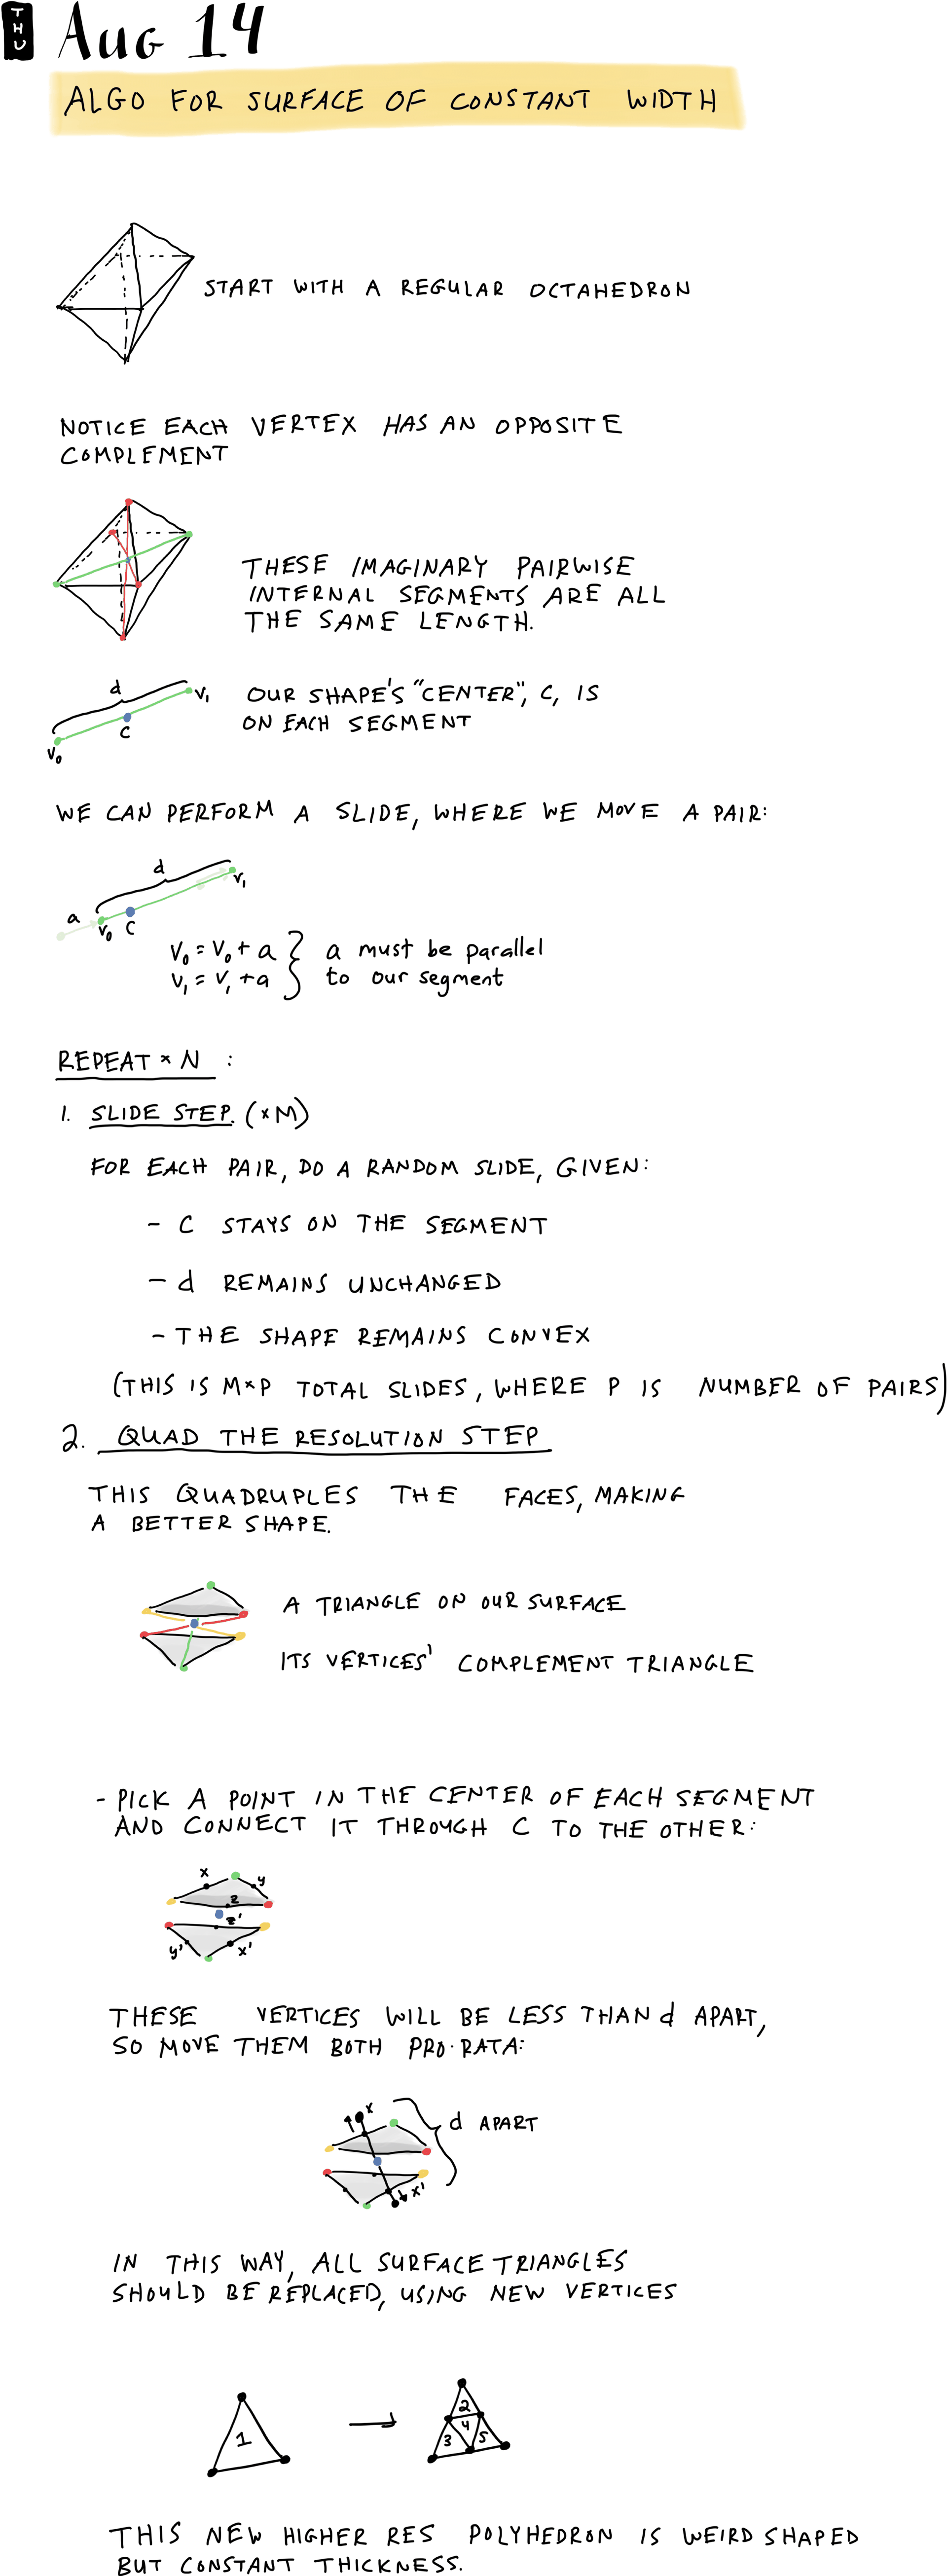 THU
Aug 14
ALGO FOR SURFACE OF CONSTANT WIDTH
START WITH A REGULAR OCTAHEDRON
NOTICE EACH VERTEX HAS AN OPPOSITE
COMPLEMENT
THESE IMAGINARY PAIRWISE
INTERNAL SEGMENTS ARE ALL
THE SAME LENGTH.
d
V₁
C
V₀
OUR SHAPE'S "CENTER", C, IS
ON EACH SEGMENT
WE CAN PERFORM A SLIDE, WHERE WE MOVE A PAIR:
d
V₁
a
V₀
C
V₀ = V₀ + a } a must be parallel
V₁ = V₁ + a } to our segment
REPEAT × N :
1. SLIDE STEP. (×M)
FOR EACH PAIR, DO A RANDOM SLIDE, GIVEN:
- C STAYS ON THE SEGMENT
- d REMAINS UNCHANGED
- THE SHAPE REMAINS CONVEX
(THIS IS M×P TOTAL SLIDES, WHERE P IS NUMBER OF PAIRS)
2. QUAD THE RESOLUTION STEP
THIS QUADRUPLES THE FACES, MAKING
A BETTER SHAPE.
A TRIANGLE ON OUR SURFACE
ITS VERTICES' COMPLEMENT TRIANGLE
- PICK A POINT IN THE CENTER OF EACH SEGMENT
AND CONNECT IT THROUGH C TO THE OTHER:
x
y
z
z'
y'
x'
THESE VERTICES WILL BE LESS THAN d APART,
SO MOVE THEM BOTH PRO-RATA:
x
d APART
x'
IN THIS WAY, ALL SURFACE TRIANGLES
SHOULD BE REPLACED, USING NEW VERTICES
1
2
3 4 5
THIS NEW HIGHER RES POLYHEDRON IS WEIRD SHAPED
BUT CONSTANT THICKNESS.